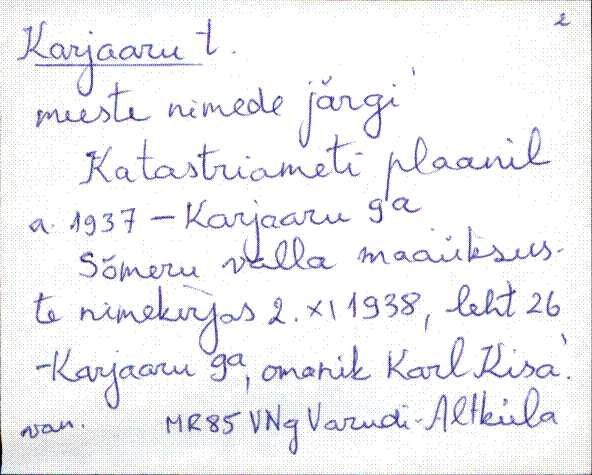 2
Karjaaru t.
meeste nimede järgi
Katastriameti plaanil
a. 1937 – Karjaaru ga
Sõmeru valla maaüksus-
te nimekirjas 2. XI 1938, leht 26
-Karjaaru ga, omanik Karl Kisa.
van. MR85 VNg Varudi-Altküla